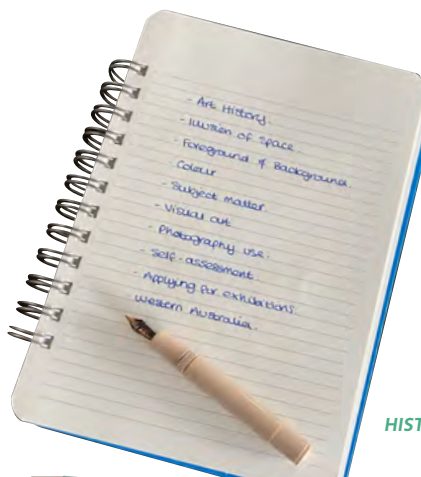 - Art History.
- Illusion of space
- Foreground & Background.
- Colour
- Subject matter.
- Visual art
- Photography use.
- Self-assessment.
- Applying for exhibitions.
Western Australia.
HIST